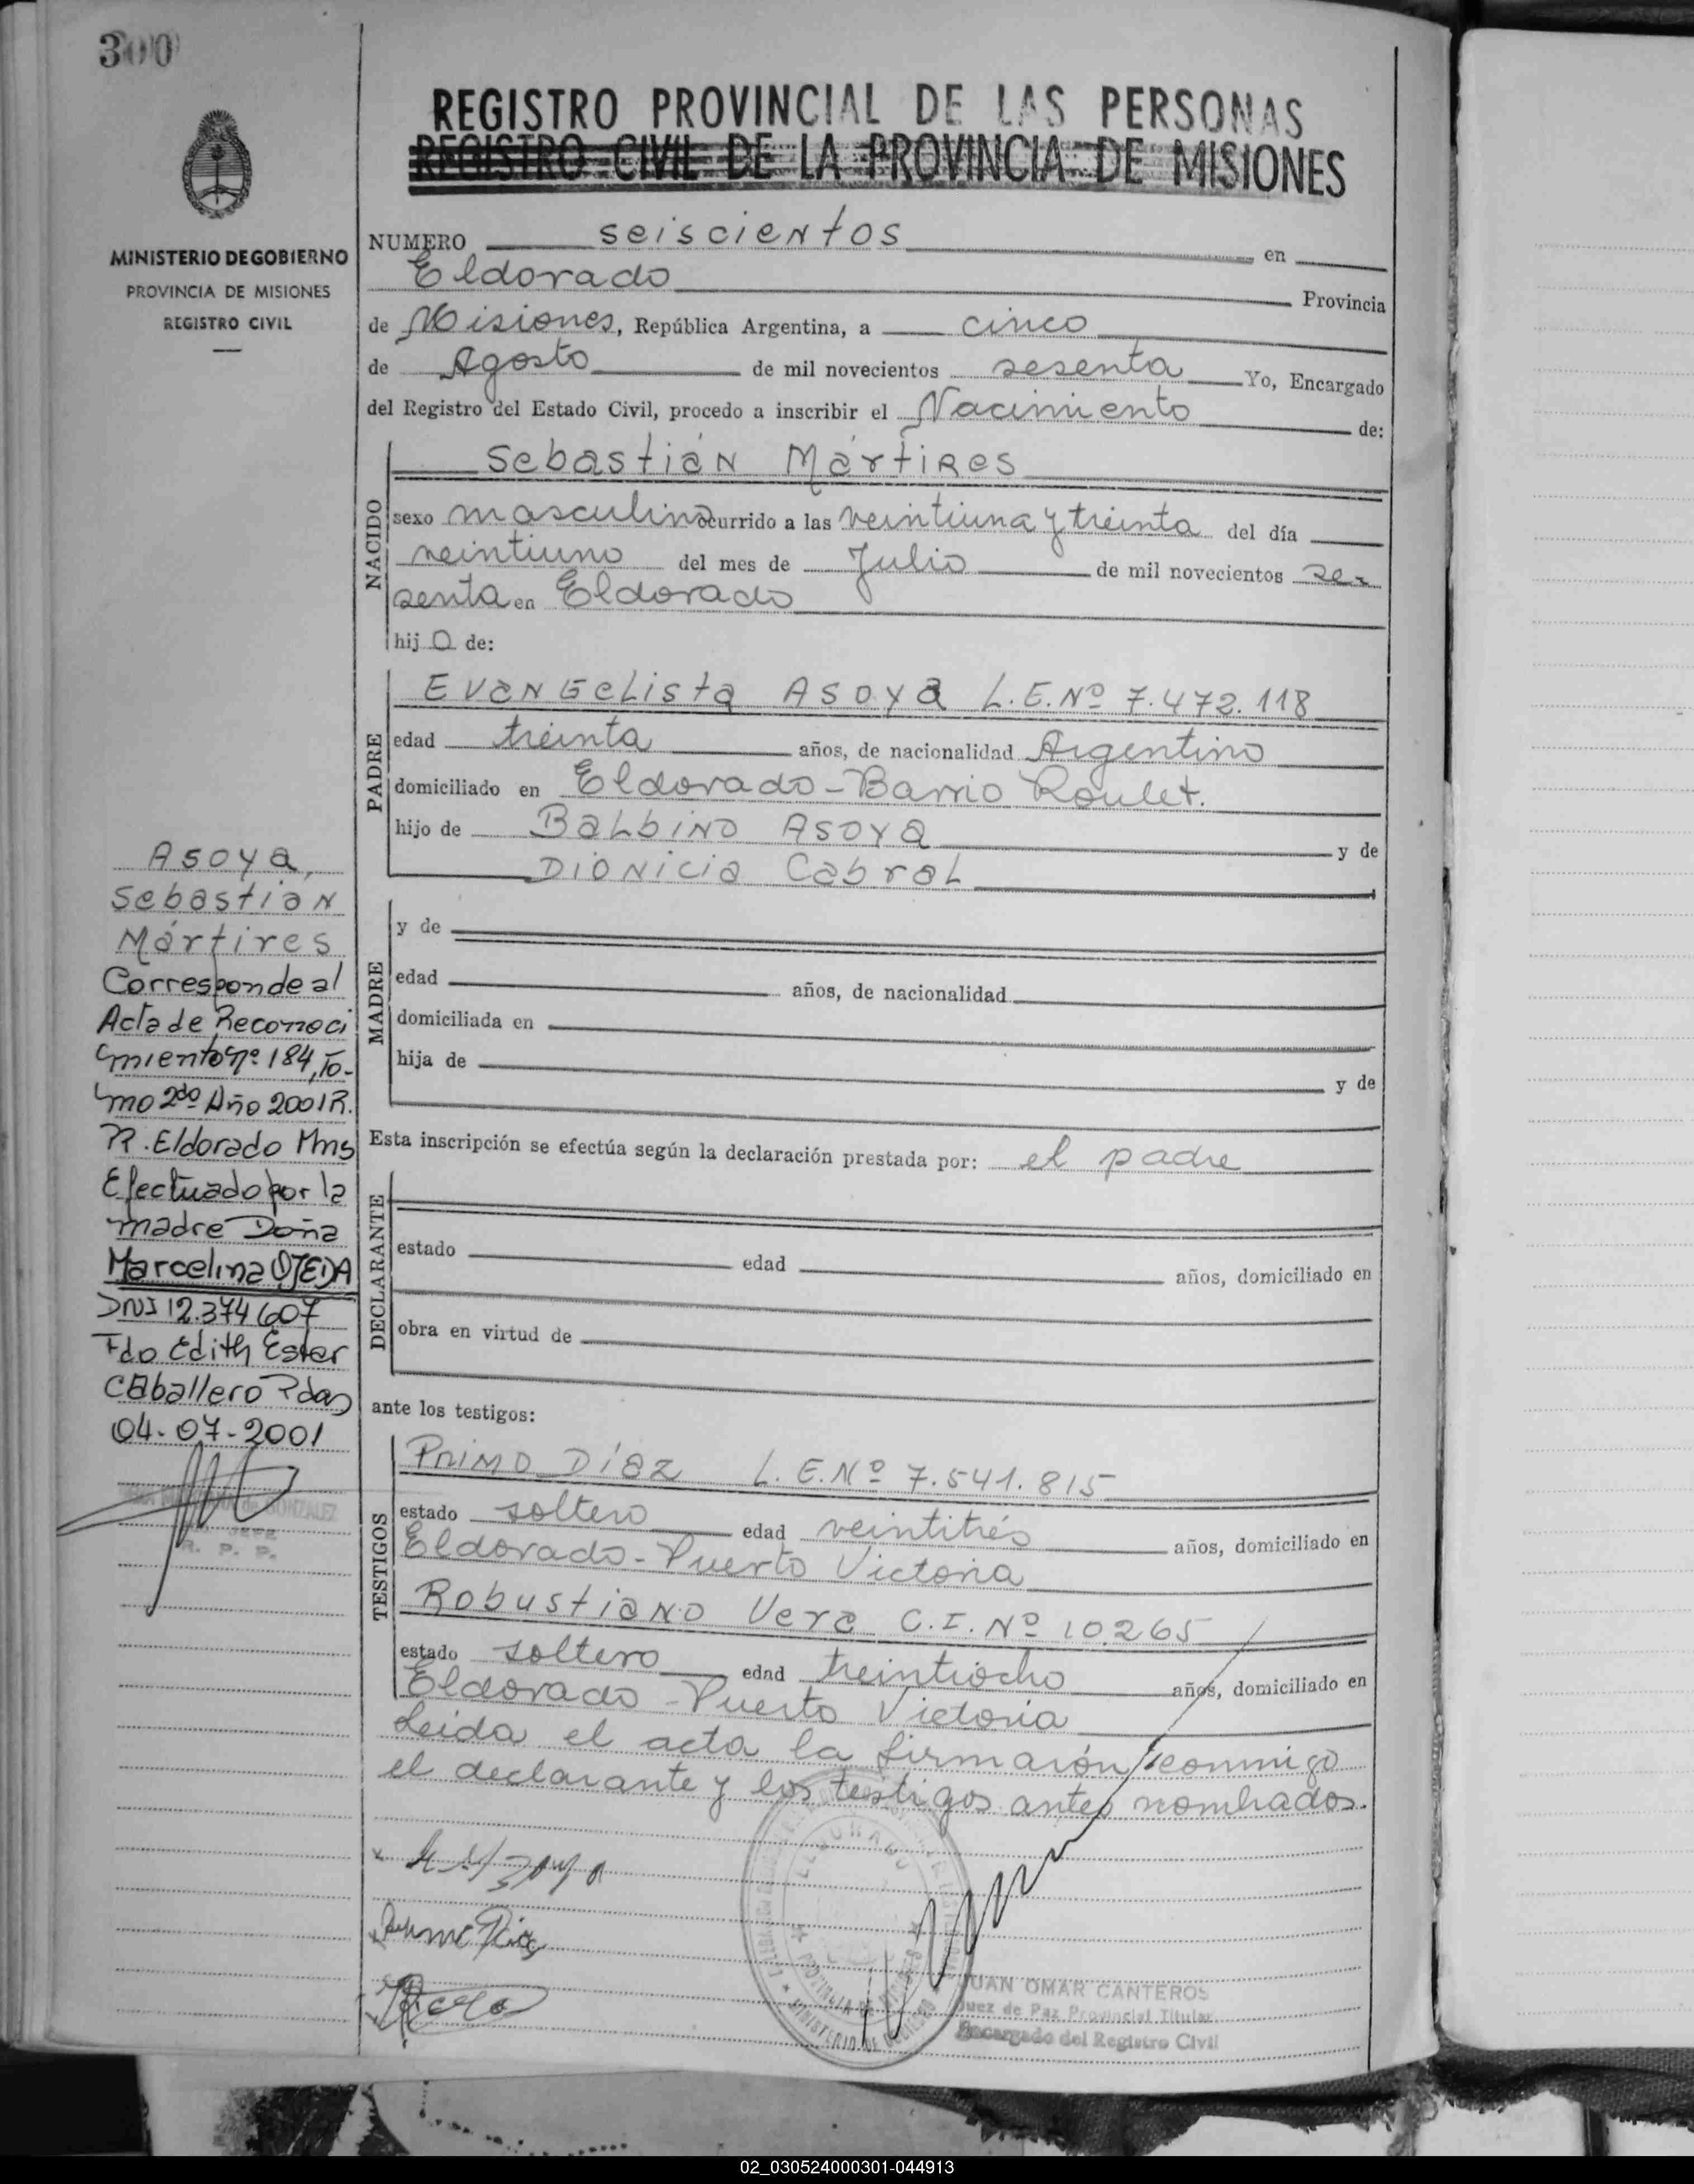 300
REGISTRO PROVINCIAL DE LAS PERSONAS
REGISTRO CIVIL DE LA PROVINCIA DE MISIONES
MINISTERIO DE GOBIERNO
PROVINCIA DE MISIONES
REGISTRO CIVIL
NUMERO seiscientos en
Eldorado Provincia
de Misiones, República Argentina, a cinco
de Agosto de mil novecientos sesenta Yo, Encargado
del Registro del Estado Civil, procedo a inscribir el Nacimiento de:
NACIDO
Sebastián Mártires
sexo masculino ocurrido a las veintiuna y treinta del día
veintiuno del mes de Julio de mil novecientos se-
senta en Eldorado
hijo de:
PADRE
Evangelista Asoya L.E.Nº 7.472.118
edad treinta años, de nacionalidad Argentino
domiciliado en Eldorado-Barrio Roulet.
hijo de Balbino Asoya y de
Dionicia Cabral
MADRE
y de
edad años, de nacionalidad
domiciliada en
hija de y de
Esta inscripción se efectúa según la declaración prestada por: el padre
DECLARANTE
estado edad años, domiciliado en
obra en virtud de
ante los testigos:
TESTIGOS
Primo Díaz L.E.Nº 7.541.815
estado soltero edad veintitrés años, domiciliado en
Eldorado-Puerto Victoria
Robustiano Vera C.I.Nº 10.265
estado soltero edad treintiocho años, domiciliado en
Eldorado-Puerto Victoria
Leída el acta la firmarón conmigo
el declarante y los testigos antes nombrados.
Asoya,
Sebastián
Mártires
Corresponde al
Acta de Reconoci
miento nº 184, To-
mo 2do Año 2001 R.
P. Eldorado Mns
Efectuado por la
madre Doña
Marcelina OJEDA
DNI 12.374607
Fdo Edith Ester
Caballero Pdas
04-07-2001
de GONZALEZ
JEFE
R. P. P.
ELDORADO
PROVINCIA DE MISIONES
MINISTERIO DE GOBIERNO
JUAN OMAR CANTEROS
Juez de Paz Provincial Titular
Encargado del Registro Civil
02_030524000301-044913